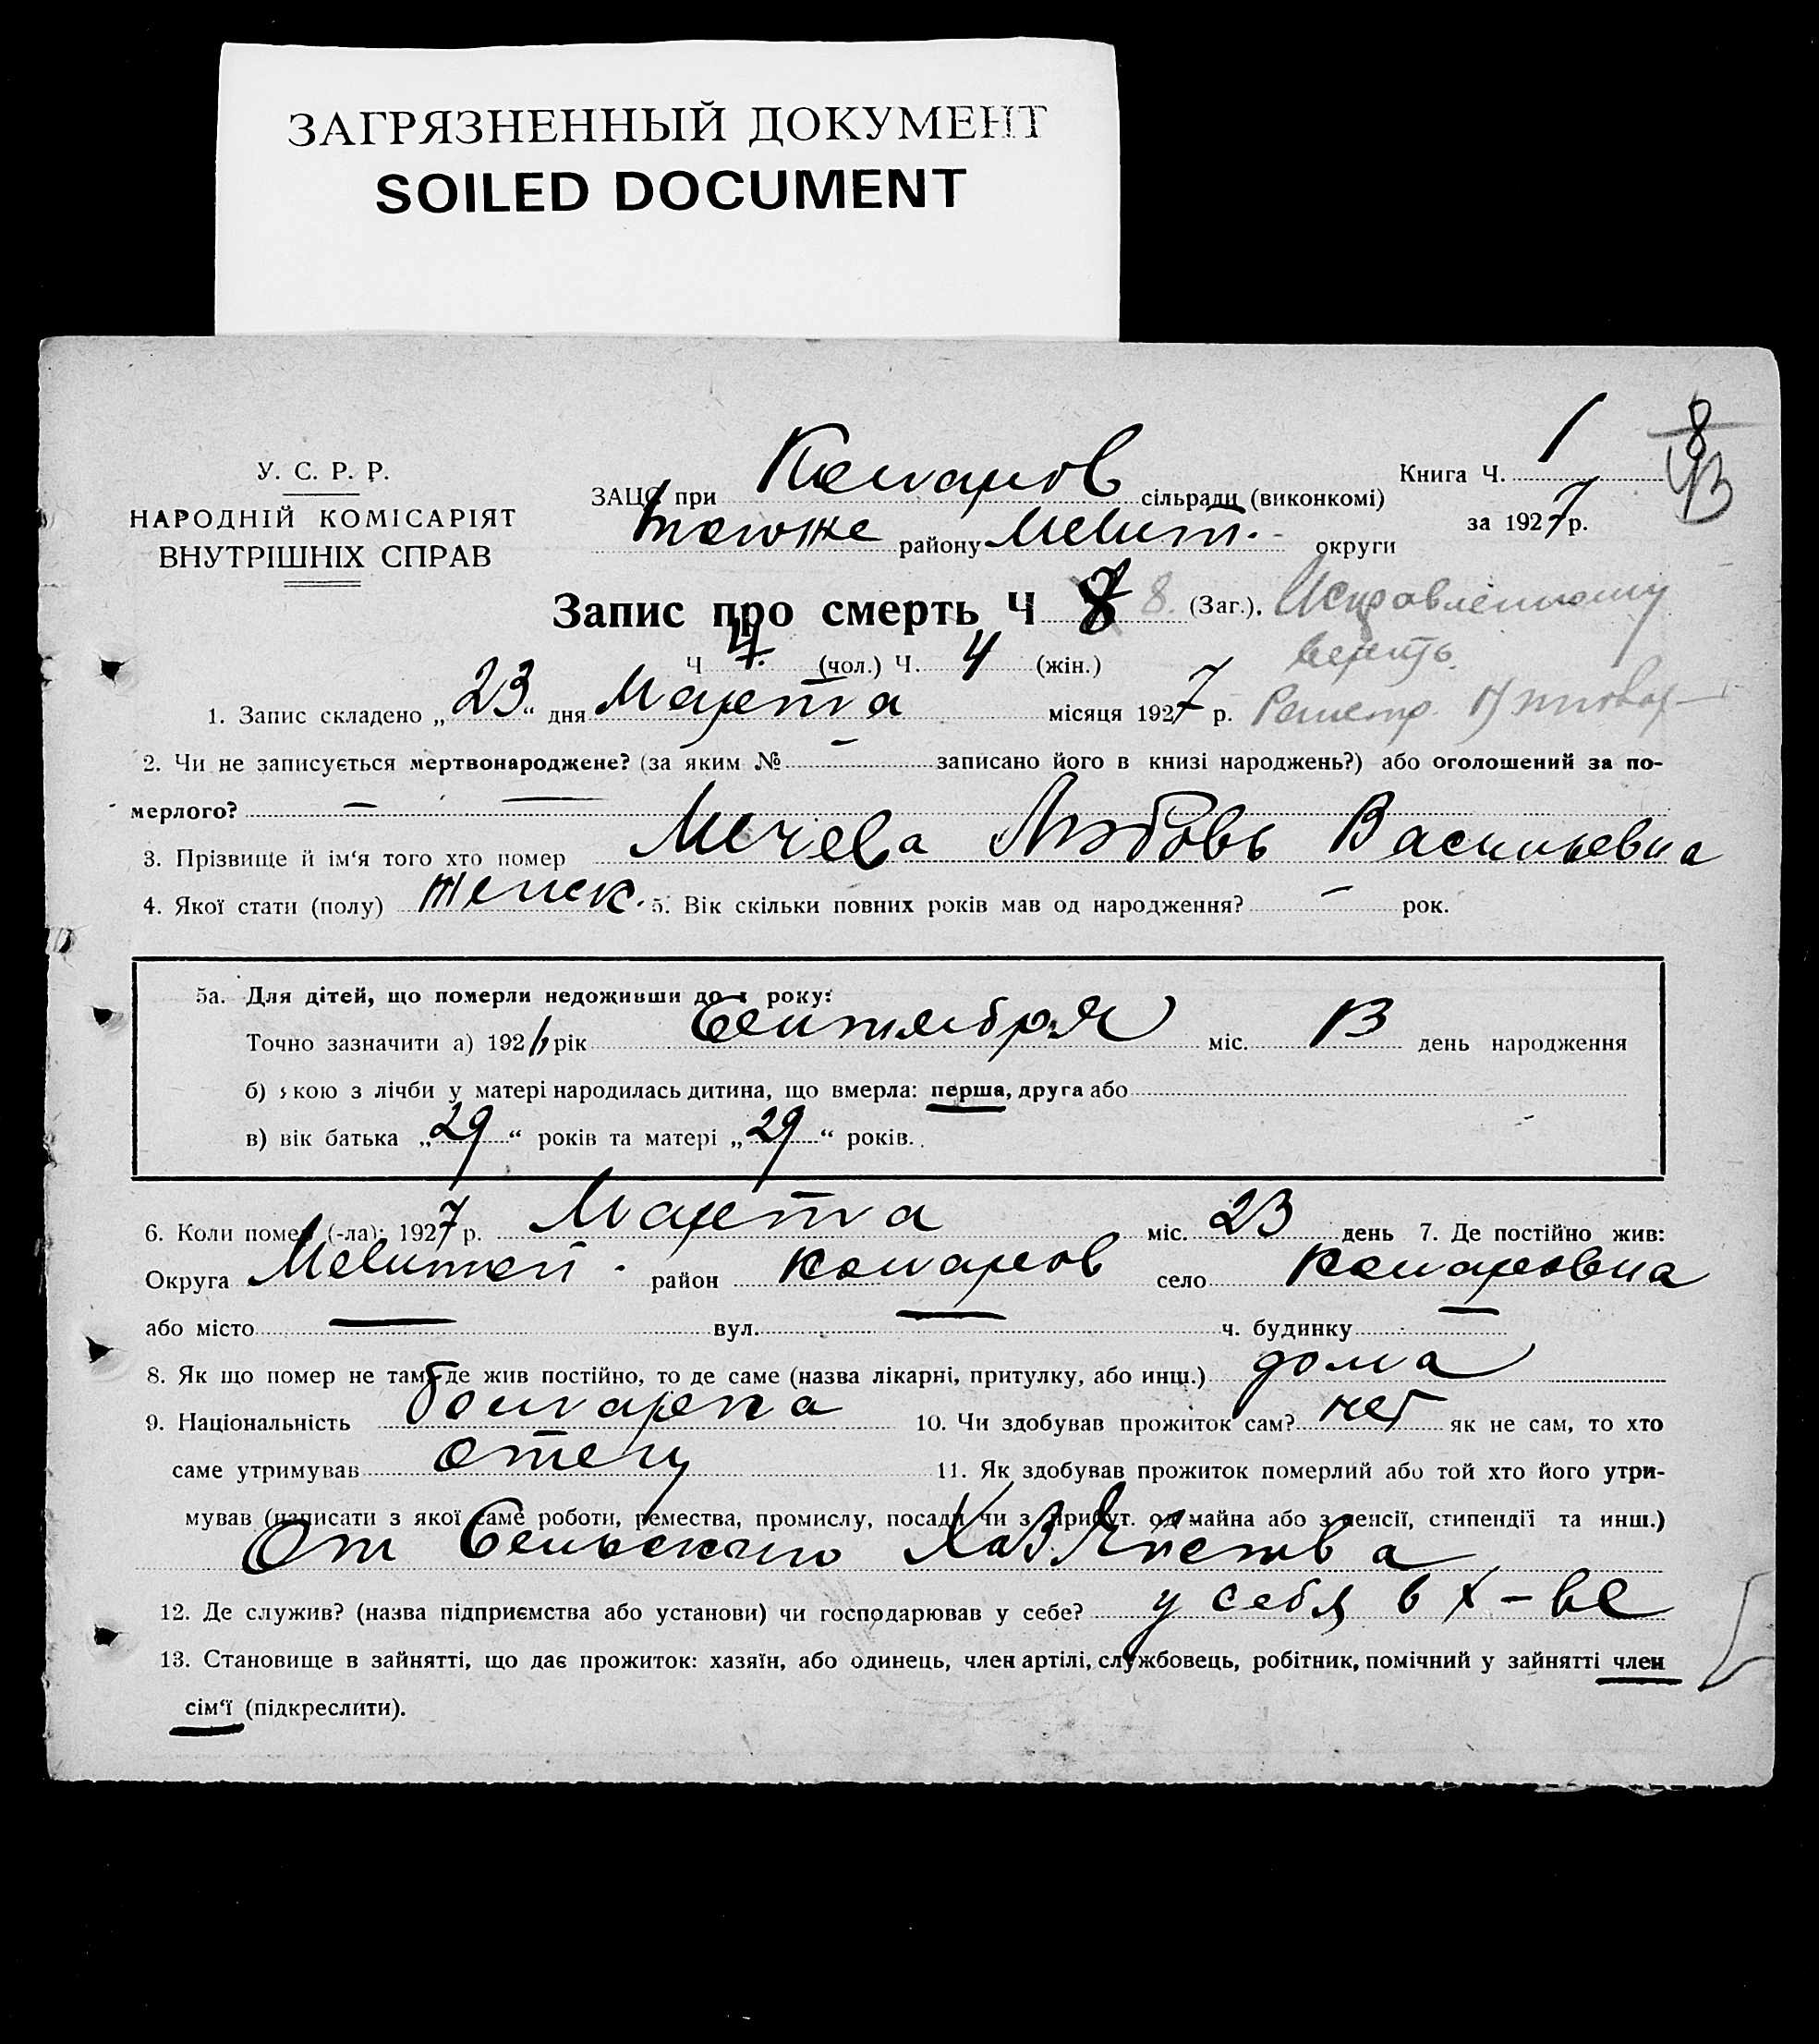 ЗАГРЯЗНЕННЫЙ ДОКУМЕНТ
SOILED DOCUMENT
У. С. Р. Р.
НАРОДНІЙ КОМІСАРІЯТ
ВНУТРІШНІХ СПРАВ
ЗАЦС при сільради (виконкомі)
тогоже району Мелит. округи
Книга Ч. 1
за 1927 р.
Запис про смерть Ч 8 8. (Заг.). Исправленному
верить.
Ч 4. (чол.) Ч. 4 (жін.)
1. Запис складено „23“ дня Марта місяця 1927 р.
2. Чи не записується мертвонароджене? (за яким № – записано його в книзі народжень?) або оголошений за по-
мерлого? — —
3. Прізвище й ім‘я того хто помер Мечева Любовь Васильевна
4. Якої стати (полу) женск. 5. Вік скільки повних років мав од народження? – рок.
5а. Для дітей, що померли недоживши до 1 року:
Точно зазначити а) 1926 рік Сентября міс. 13 день народження
б) якою з лічби у матері народилась дитина, що вмерла: перша, друга або
в) вік батька „29“ років та матері „29“ років.
6. Коли помер (-ла): 1927 р. Марта міс. 23 день 7. Де постійно жив:
Округа район село
або місто — вул. — ч. будинку —
8. Як що помер не там, де жив постійно, то де саме (назва лікарні, притулку, або инш.) дома
9. Національність болгарка 10. Чи здобував прожиток сам? нет як не сам, то хто
саме утримував отец 11. Як здобував прожиток померлий або той хто його утри-
мував (написати з якої саме роботи, ремества, промислу, посади чи з прибут. од майна або з пенсії, стипендії та инш.)
От Сельского Хозяйства
12. Де служив? (назва підприємства або установи) чи господарював у себе? у себя в х-ве
13. Становище в зайнятті, що дає прожиток: хазяїн, або одинець, член артілі, службовець, робітник, помічний у зайнятті член
сім‘ї (підкреслити).